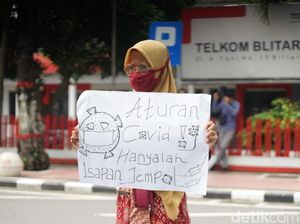 TELKOM BLITAR
Aturan
Covid
Hanyalah
Isapan Jempol
detikcom